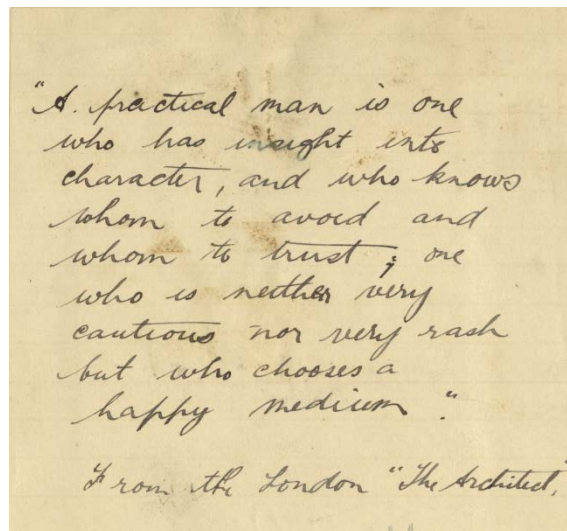 "A. practical man is one
who has insight into
character, and who knows
whom to avoid and
whom to trust; one
who is neither very
cautious nor very rash
but who chooses a
happy medium".
From the London "The Architect,